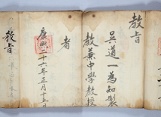 敎旨
吳道一爲知製
敎兼中學敎授
者
康熙二十六年五月十
敎旨